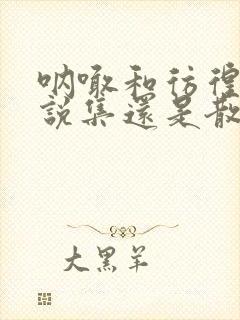 呐喊和彷徨
說集還是散
大黑羊